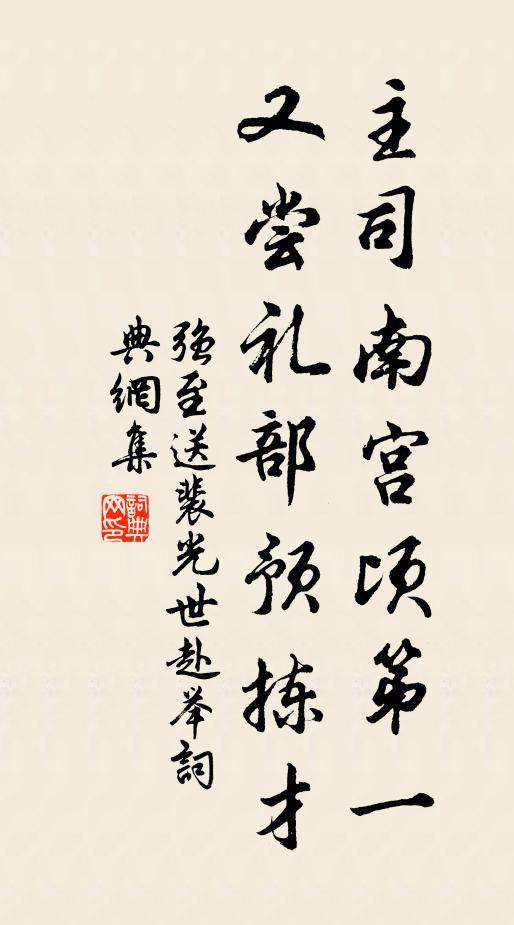 主司南宫顷第一
又尝礼部预拣才
强至送裴光世赴举詞
典網集
詞典網印